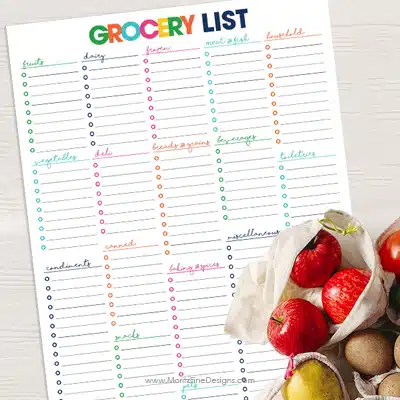 GROCERY LIST
fruits
dairy
frozen
meat & fish
household
vegetables
deli
breads & grains
beverages
toiletries
condiments
canned
baking & spices
miscellaneous
snacks
pets
www.MoritzFineDesigns.com